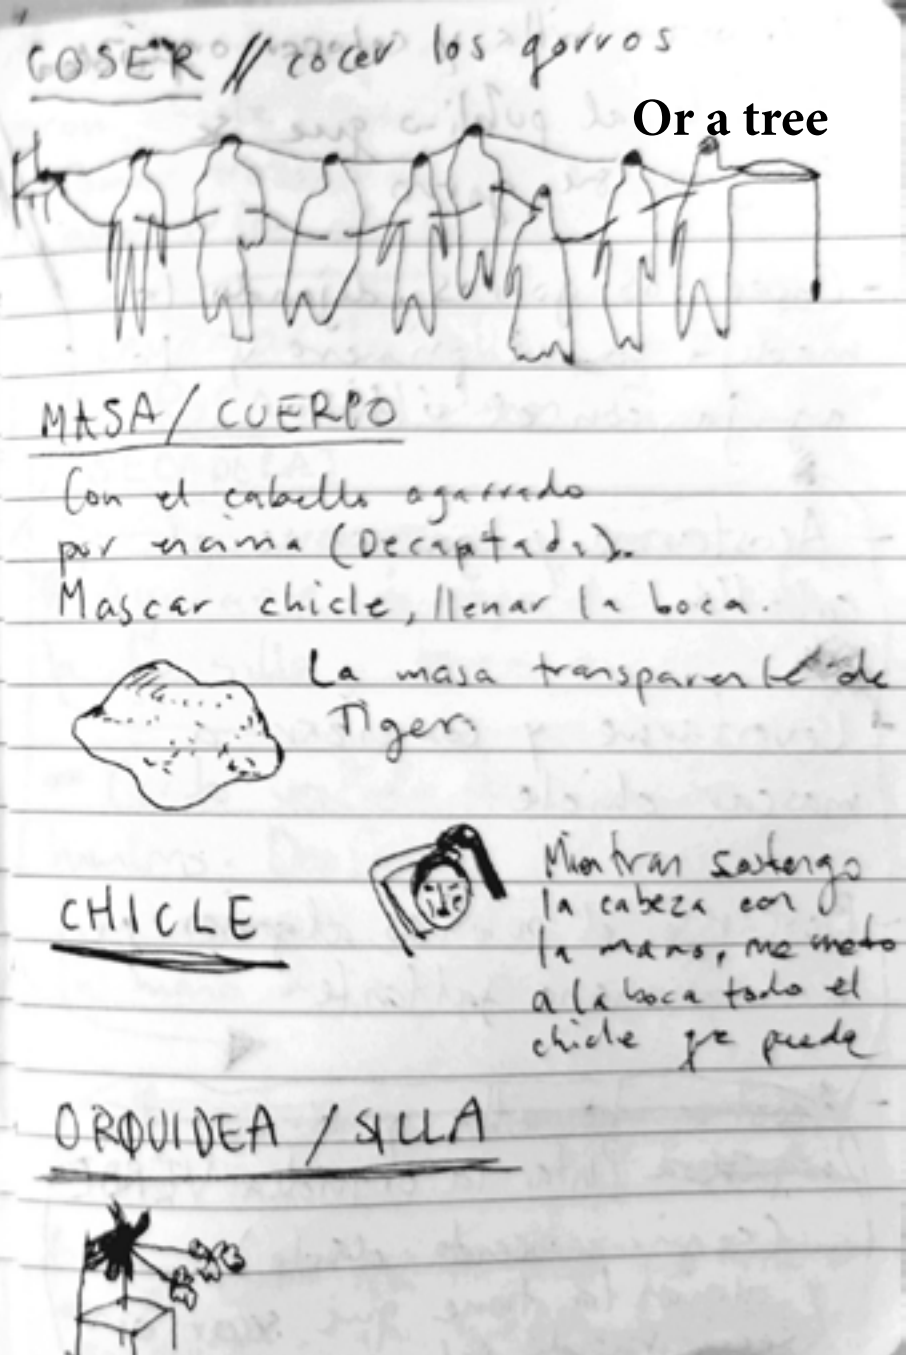 COSER // cocer los gorros
Or a tree
MASA / CUERPO
Con el cabello agarrado
por encima (Decaptada).
Mascar chicle, llenar la boca.
La masa transparente de
Tiger.
CHICLE
Mientras sostengo
la cabeza con
la mano, me meto
a la boca todo el
chicle qe pueda
ORQUIDEA / SILLA